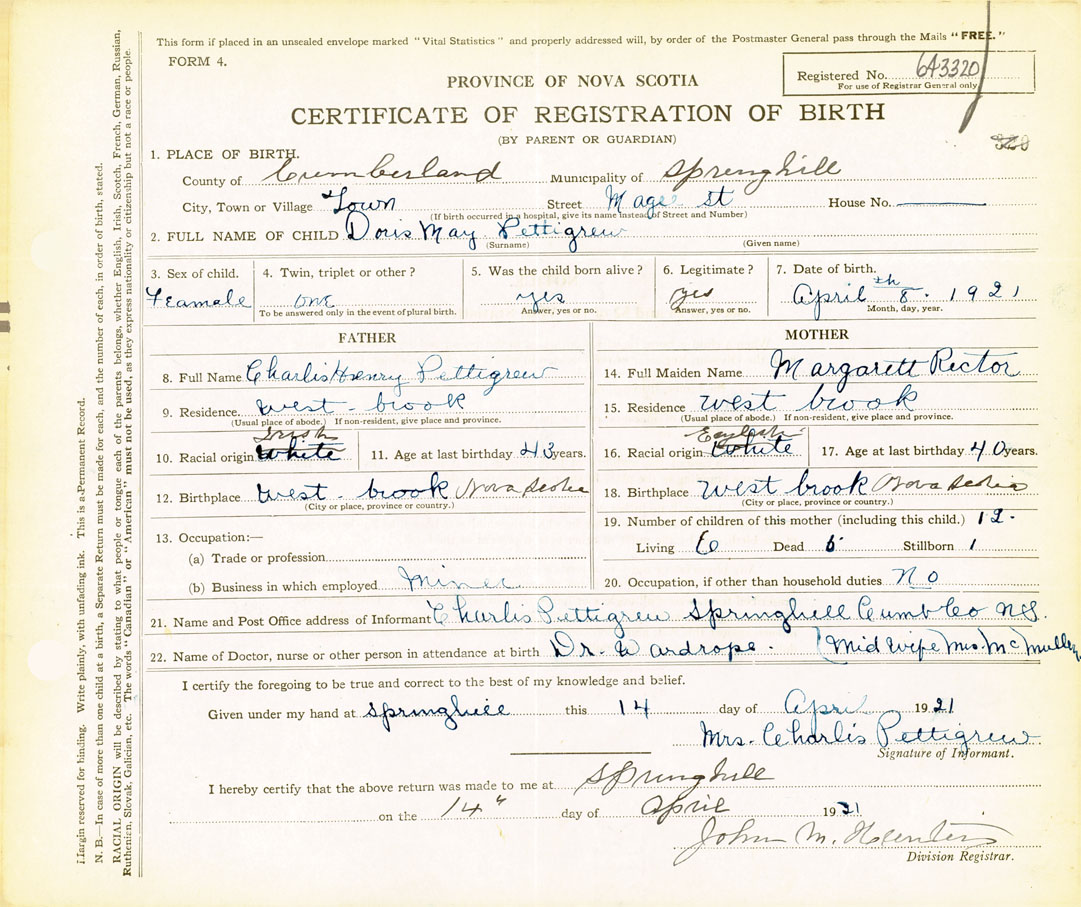 This form if placed in an unsealed envelope marked "Vital Statistics" and properly addressed will, by order of the Postmaster General pass through the Mails "FREE."
FORM 4.
Registered No. 643320
For use of Registrar General only
PROVINCE OF NOVA SCOTIA
CERTIFICATE OF REGISTRATION OF BIRTH
(BY PARENT OR GUARDIAN)
1. PLACE OF BIRTH.
County of Cumberland Municipality of Springhill
City, Town or Village Town Street Magee st House No.
(If birth occurred in a hospital, give its name instead of Street and Number)
2. FULL NAME OF CHILD Doris May Pettigrew
(Surname) (Given name)
3. Sex of child. 4. Twin, triplet or other? 5. Was the child born alive? 6. Legitimate? 7. Date of birth.
Feamale one yes yes April 8th. 1921
To be answered only in the event of plural birth. Answer, yes or no. Answer, yes or no. Month, day, year.
FATHER MOTHER
8. Full Name Charlis Henry Pettigrew
9. Residence. West-brook
(Usual place of abode.) If non-resident, give place and province.
Irish
10. Racial origin White 11. Age at last birthday 43 years.
12. Birthplace West-brook Nova Scotia
(City or place, province or country.)
13. Occupation:—
(a) Trade or profession
(b) Business in which employed Miner
14. Full Maiden Name Margarett Rector
15. Residence West brook
(Usual place of abode.) If non-resident, give place and province.
English
16. Racial origin White 17. Age at last birthday 40 years.
18. Birthplace West brook Nova Scotia
(City or place, province or country.)
19. Number of children of this mother (including this child.) 12.
Living 6 Dead 5 Stillborn 1
20. Occupation, if other than household duties No
21. Name and Post Office address of Informant Charlis Pettigrew Springhill Cumb Co NS.
22. Name of Doctor, nurse or other person in attendance at birth Dr. Wardrope. (Midwife Mrs. McMullen
I certify the foregoing to be true and correct to the best of my knowledge and belief.
Given under my hand at Springhill this 14 day of April 1921
Mrs. Charlis Pettigrew
Signature of Informant.
I hereby certify that the above return was made to me at Springhill
on the 14" day of April 1921
John M.
Division Registrar.
Margin reserved for binding. Write plainly, with unfading ink. This is a Permanent Record.
N. B.—In case of more than one child at a birth, a Separate Return must be made for each, and the number of each, in order of birth, stated.
RACIAL ORIGIN will be described by stating to what people or tongue each of the parents belongs, whether English, Irish, Scotch, French, German, Russian,
Ruthenien, Slovak, Galician, etc. The words "Canadian" or "American" must not be used, as they express nationality or citizenship but not a race or people.